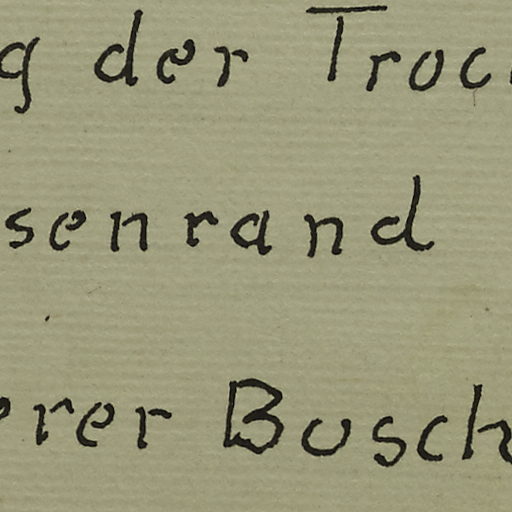 g der Troc
senrand
erer Busch